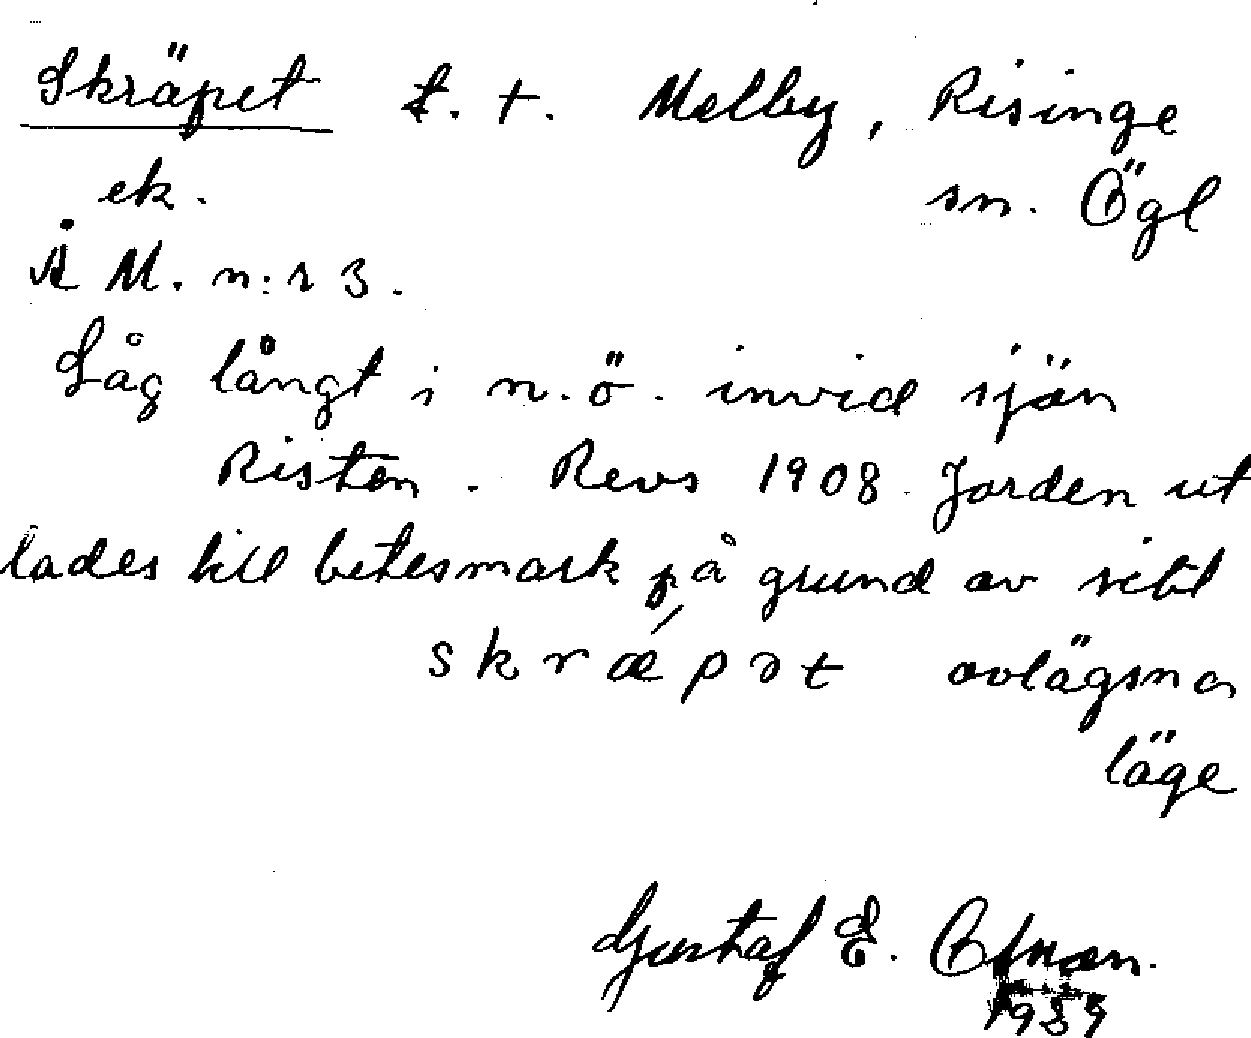 Skräpet t. t. Melby, Risinge
ek. sn. Ögl
Å M. n:r 3.
Låg långt i n.ö. invid sjön
Risten. Revs 1908. Jorden ut
lades till betesmark på grund av sitt
skrǽpət avlägsna
läge
Gustaf E.
1939